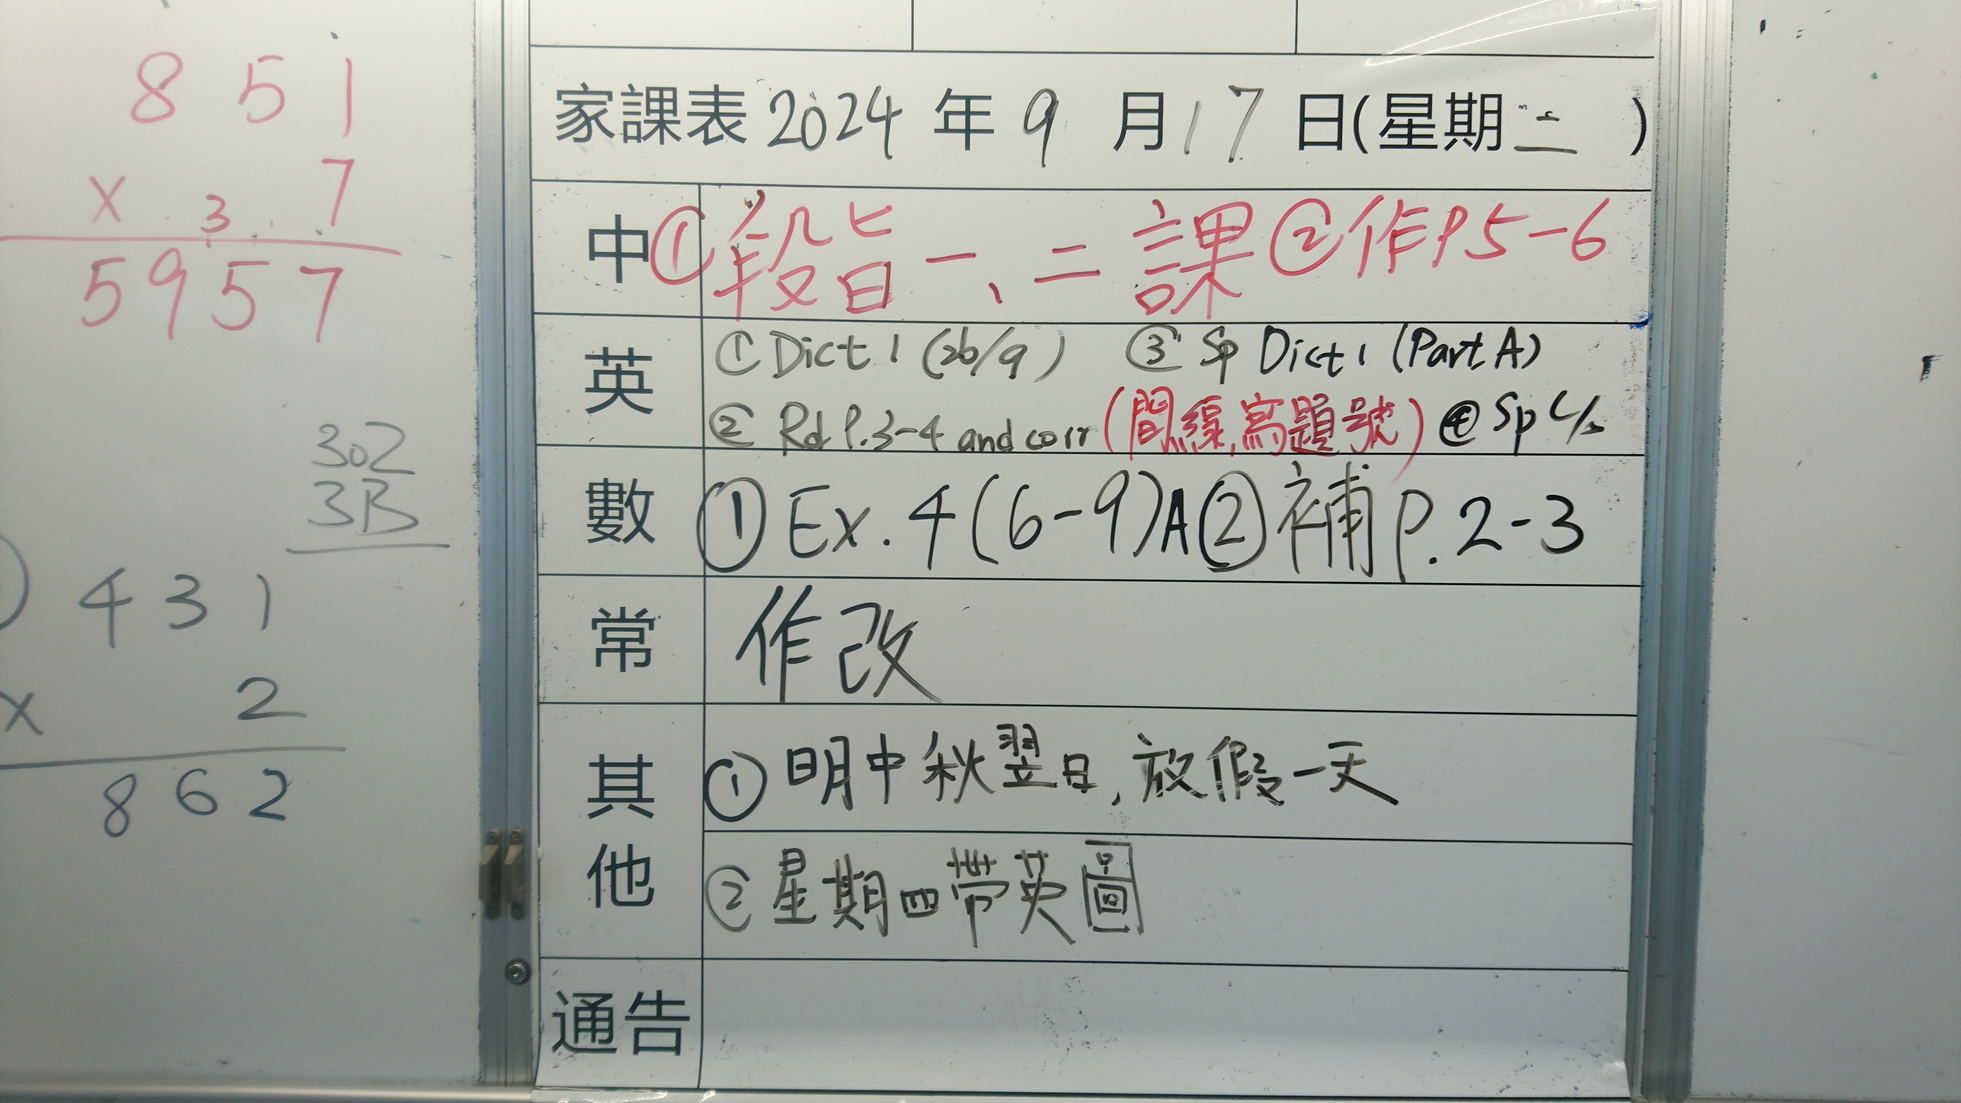 8 5 1
× 3 7
5 9 5 7
302
3B
4 3 1
× 2
8 6 2
家課表 2024 年 9 月 17 日(星期二)
中 ① 段旨一、二課 ② 作P5-6
英 ① Dict 1 (26/9) ③ Sp Dict 1 (Part A)
② Rd P.3-4 and corr (間線,寫題號) ④ Sp C/s
數 ① Ex. 4 (6-9)A ② 補 P. 2-3
常 作改
其他 ① 明中秋翌日, 放假一天
② 星期四帶英圖
通告